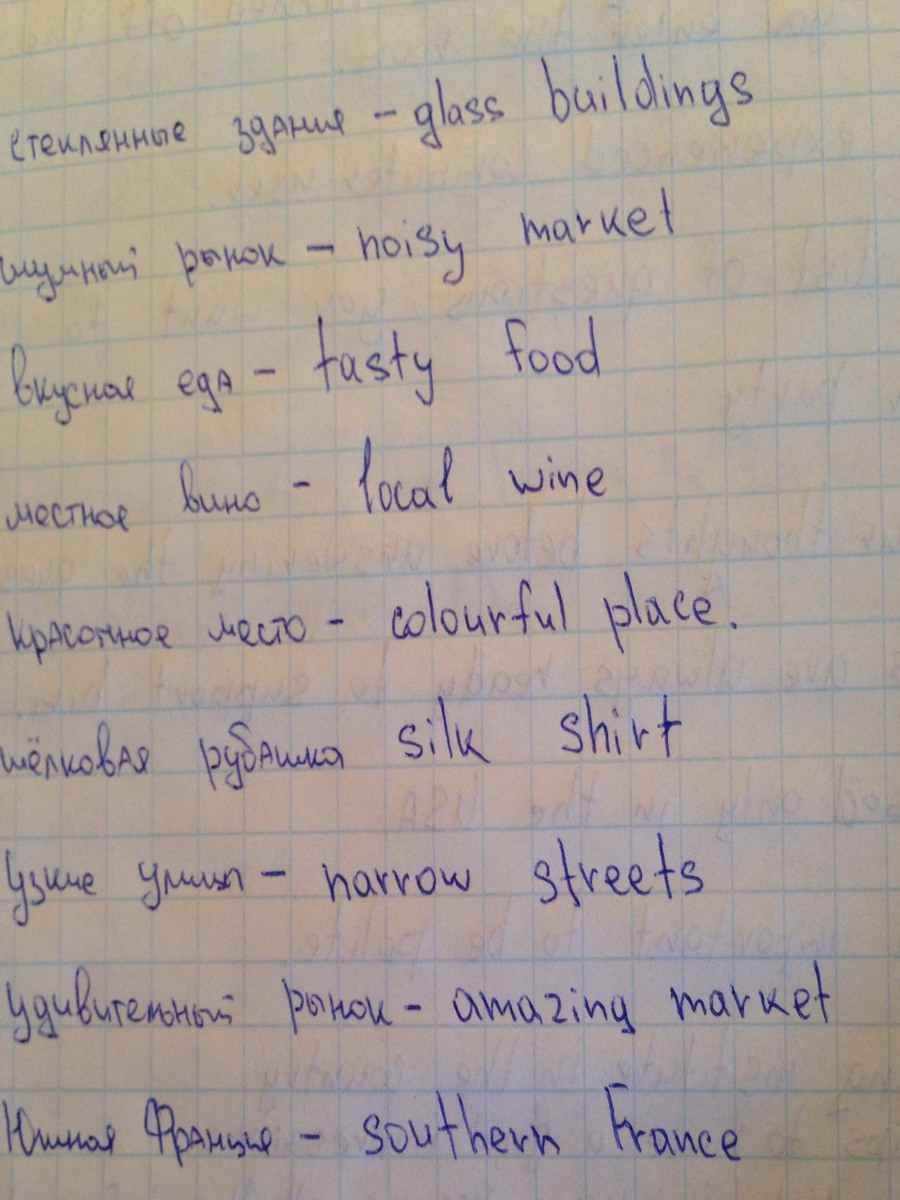 стеклянные здания - glass buildings
шумный рынок - noisy market
вкусная еда - tasty food
местное вино - local wine
красочное место - colourful place.
шёлковая рубашка silk shirt
Узкие улицы - narrow streets
Удивительный рынок - amazing market
Южная Франция - southern France